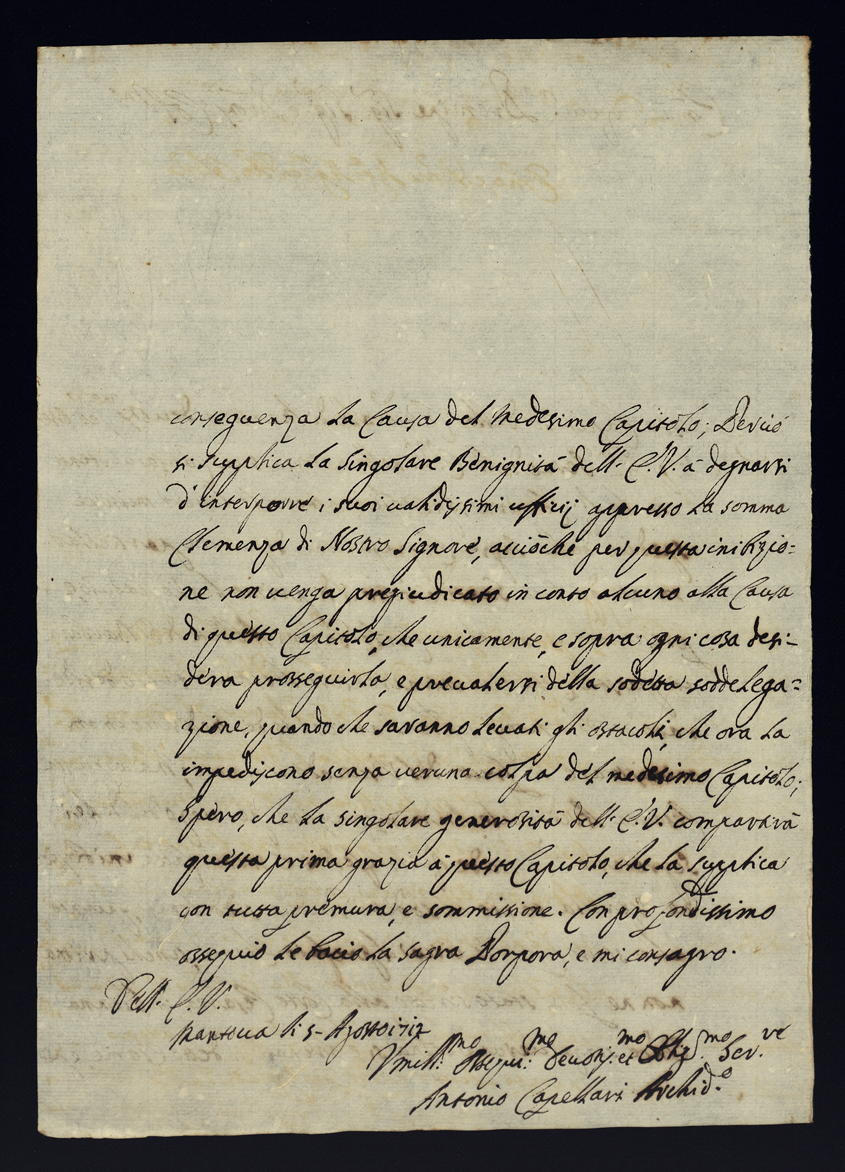 conseguenza la Causa del medesimo Capitolo; Perciò
si supplica la singolare Benignità dell' E.V. à degnarsi
d'interporre i suoi validissimi ufficij appresso la somma
Clemenza di Nostro Signore, acciòche per questa inibizio=
ne non venga pregiudicato in conto alcuno alla Causa
di questo Capitolo, che unicamente, e sopra ogni cosa desi-
dera prosseguirla, e prevalersi della sodetta soddelega=
zione, quando che saranno levati gli ostacoli, che ora la
impediscono senza veruna colpa del medesimo Capitolo;
Spero, che la singolare generosità dell' E.V. compartirà
questa prima grazia à questo Capitolo, che la supplica
con tutta premura, e sommissione. Con profondissimo
ossequio le bacio la sagra Porpora, e mi consagro.
Dell' E.V.
Mantova li 5 Agosto 1712
Vmill.mo Ossequi.mo Devotis.mo et Oblig.mo Ser.ve
Antonio Capellari Archid.o